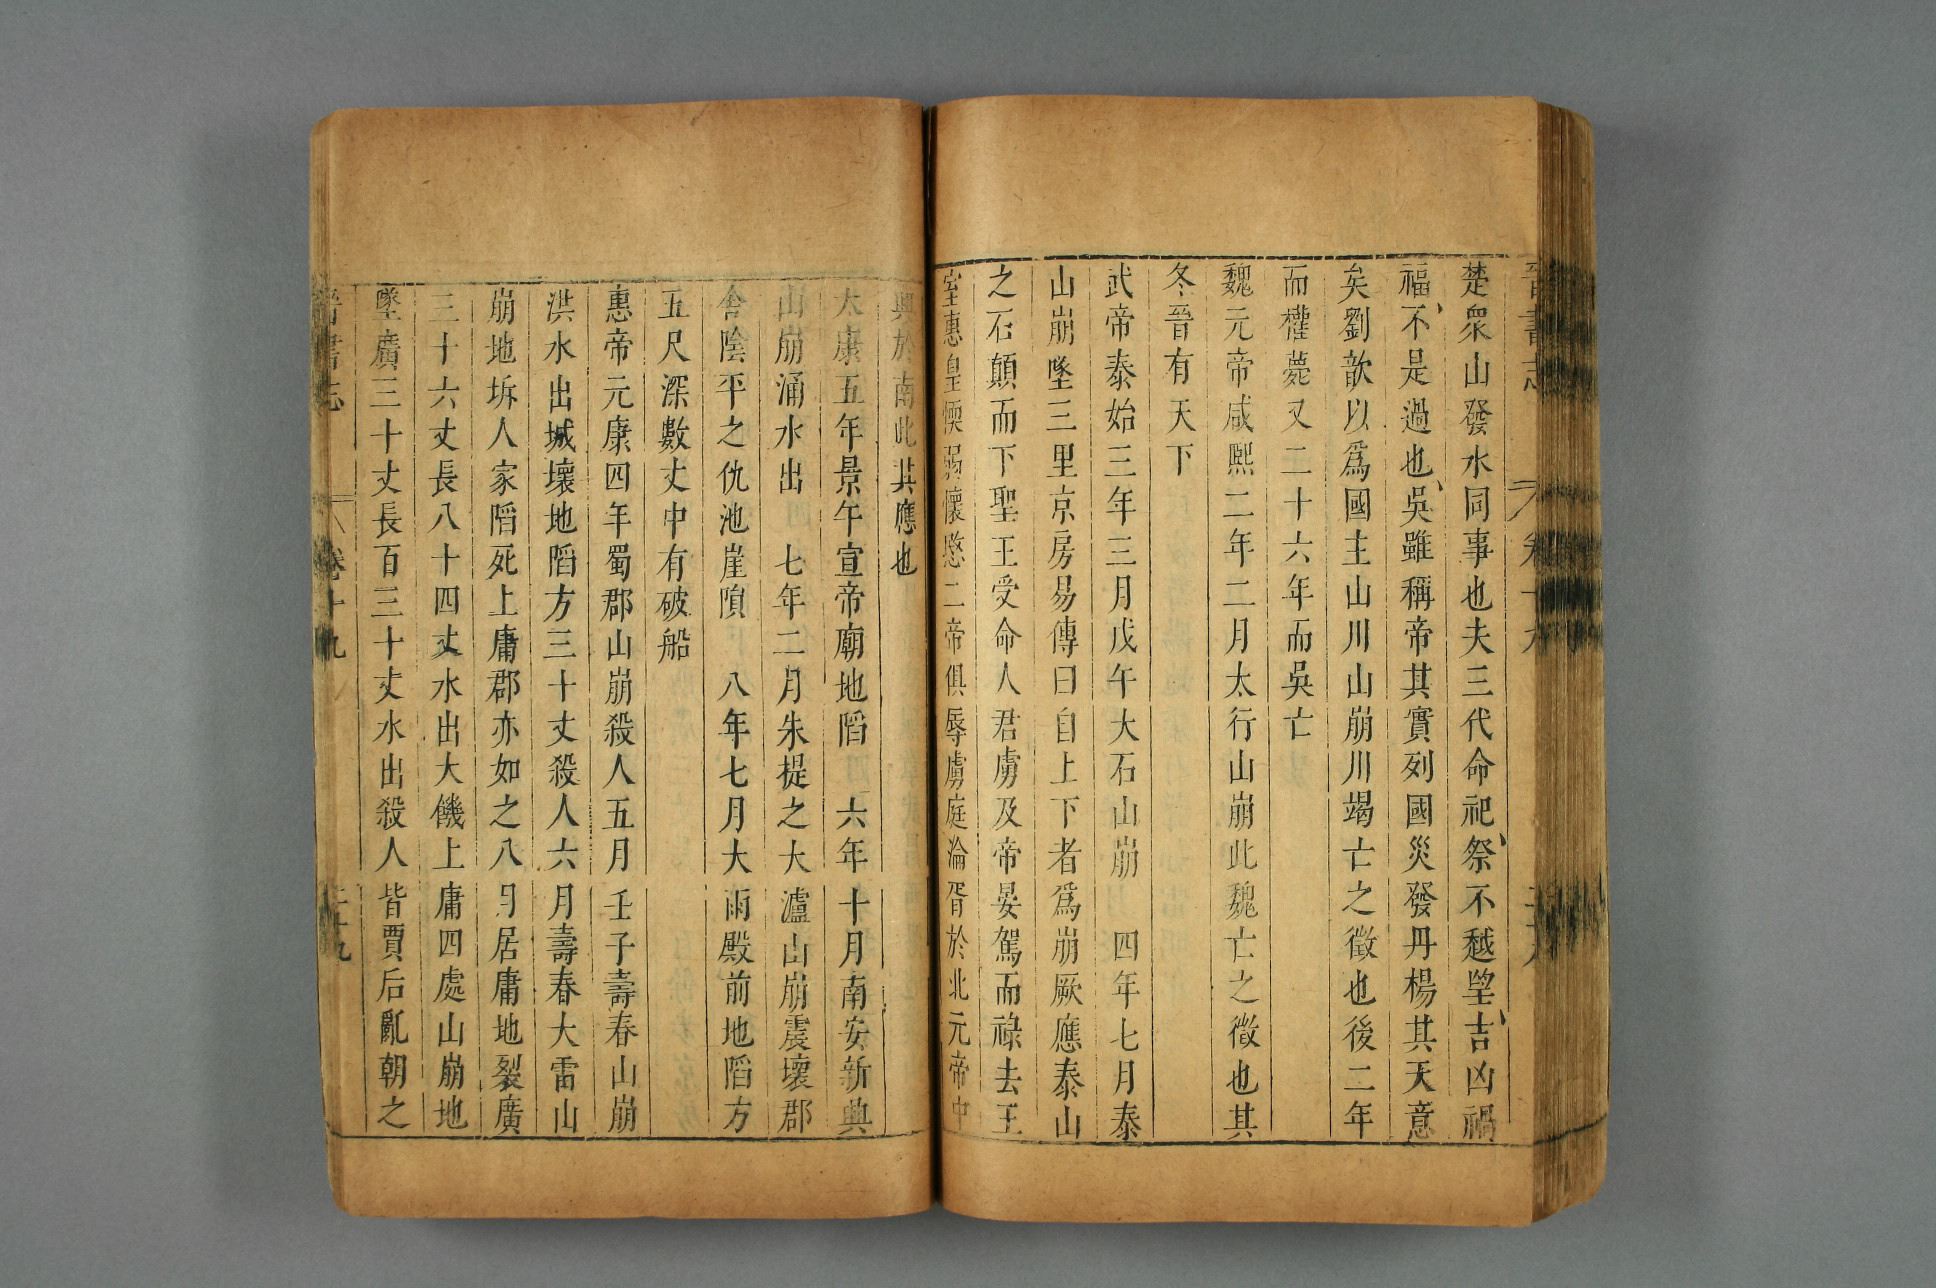 晉書志 卷十九
楚衆山發水同事也夫三代命祀祭不越望吉凶禍
福不是過也吳雖稱帝其實列國災發丹楊其天意
矣劉歆以爲國主山川山崩川竭亡之徵也後二年
而權薨又二十六年而吳亡
魏元帝咸熙二年二月太行山崩此魏亡之徵也其
冬晉有天下
武帝泰始三年三月戊午大石山崩 四年七月泰
山崩墜三里京房易傳曰自上下者爲崩厥應泰山
之石顛而下聖王受命人君虜及帝晏駕而祿去王
室惠皇懦弱懷愍二帝俱辱虜庭淪胥於北元帝中
興於南此其應也
太康五年景午宣帝廟地陷 六年十月南安新興
山崩涌水出 七年二月朱提之大瀘山崩震壞郡
舍陰平之仇池崖隕 八年七月大雨殿前地陷方
五尺深數丈中有破船
惠帝元康四年蜀郡山崩殺人五月壬子壽春山崩
洪水出城壞地陷方三十丈殺人六月壽春大雷山
崩地坼人家陷死上庸郡亦如之八月居庸地裂廣
三十六丈長八十四丈水出大饑上庸四處山崩地
墜廣三十丈長百三十丈水出殺人皆賈后亂朝之
晉書志 卷十九 二十九